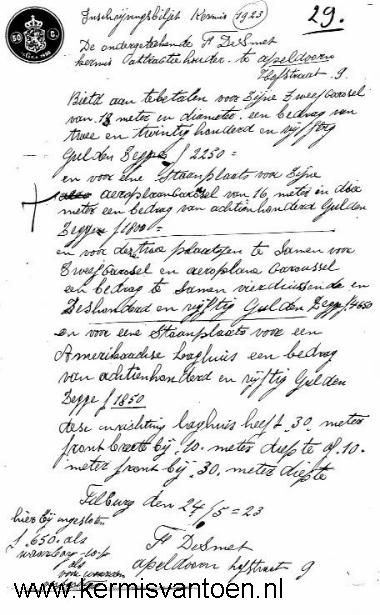 Inschrijvingsbiljet Kermis 1923
29.
50 C.
De ondergeteekende F DeSmet
kermis Attractiehouder te apeldoorn
Hofstraat 9.
Bied aan te betalen voor Zijne Zweefcarosel
van 18 meter in diameter een bedrag van
twee en twintig honderd en vijftig
Gulden Zegge f 2250=
en voor eene Staanplaats voor Zijne
aeroplaan Carosel van 16 meter in dia
meter een bedrag van achtienhonderd Gulden
Zegge f 1800=
en voor deze twee plaatsen te Samen voor
Zweefcarosel en aeroplane Caroussel
een bedrag te Samen vierduizende en
Zeshonderd en vijftig Gulden Zegge f 4650
en voor eene Staanplaats voor een
Amerikaadse Laghuis een bedrag
van achtienhonderd en vijftig Gulden
Zegge f 1850
deze inrichting laghuis heeft 30. meter
front breete bij 10. meter diepte of 10.
meter front bij 30. meter diepte
Tilburg den 24/5=23
hier bij ingesloten
f 650. als
waarborg
als
F DeSmet
apeldoorn hofstraat 9
www.kermisvantoen.nl